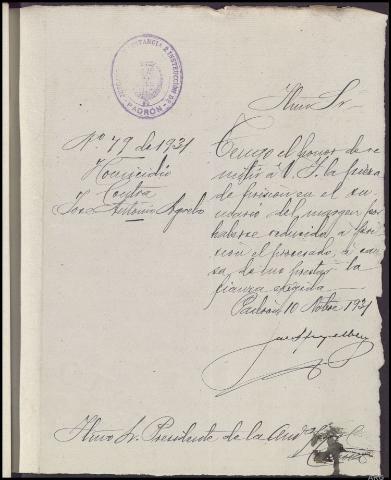 INSTANCIA E INSTRUCCIÓN DE
PADRÓN
Nº 79 de 1931
Homicidio
Contra
José Antonio Agrelo
Ilmo Sr.
Tengo el honor de re-
mitir á V. I. la pieza
de prisión en el su-
mario del margen por
haberse reducido á pri-
sión el procesado, á cau-
sa de no prestar la
fianza exigida
Padrón 10 Nobre 1931
Ilmo Sr. Presidente de la Audª